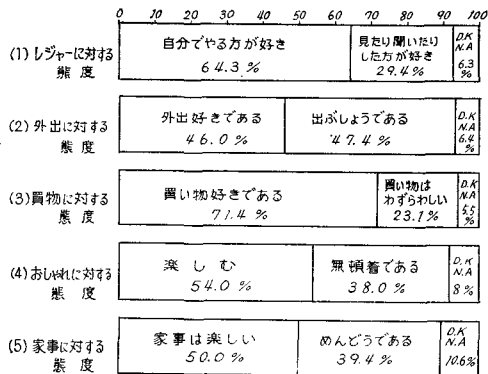 0 10 20 30 40 50 60 70 80 90 100
(1) レジャーに対する
態度
自分でやる方が好き
64.3%
見たり聞いたり
した方が好き
29.4%
D.K
N.A
6.3
%
(2) 外出に対する
態度
外出好きである
46.0%
出ぶしょうである
47.4%
D.K
N.A
6.4
%
(3) 買物に対する
態度
買い物好きである
71.4%
買い物は
わずらわしい
23.1%
D.K
N.A
5.5
%
(4) おしゃれに対する
態度
楽しむ
54.0%
無頓着である
38.0%
D.K
N.A
8%
(5) 家事に対する
態度
家事は楽しい
50.0%
めんどうである
39.4%
D.K
N.A
10.6%